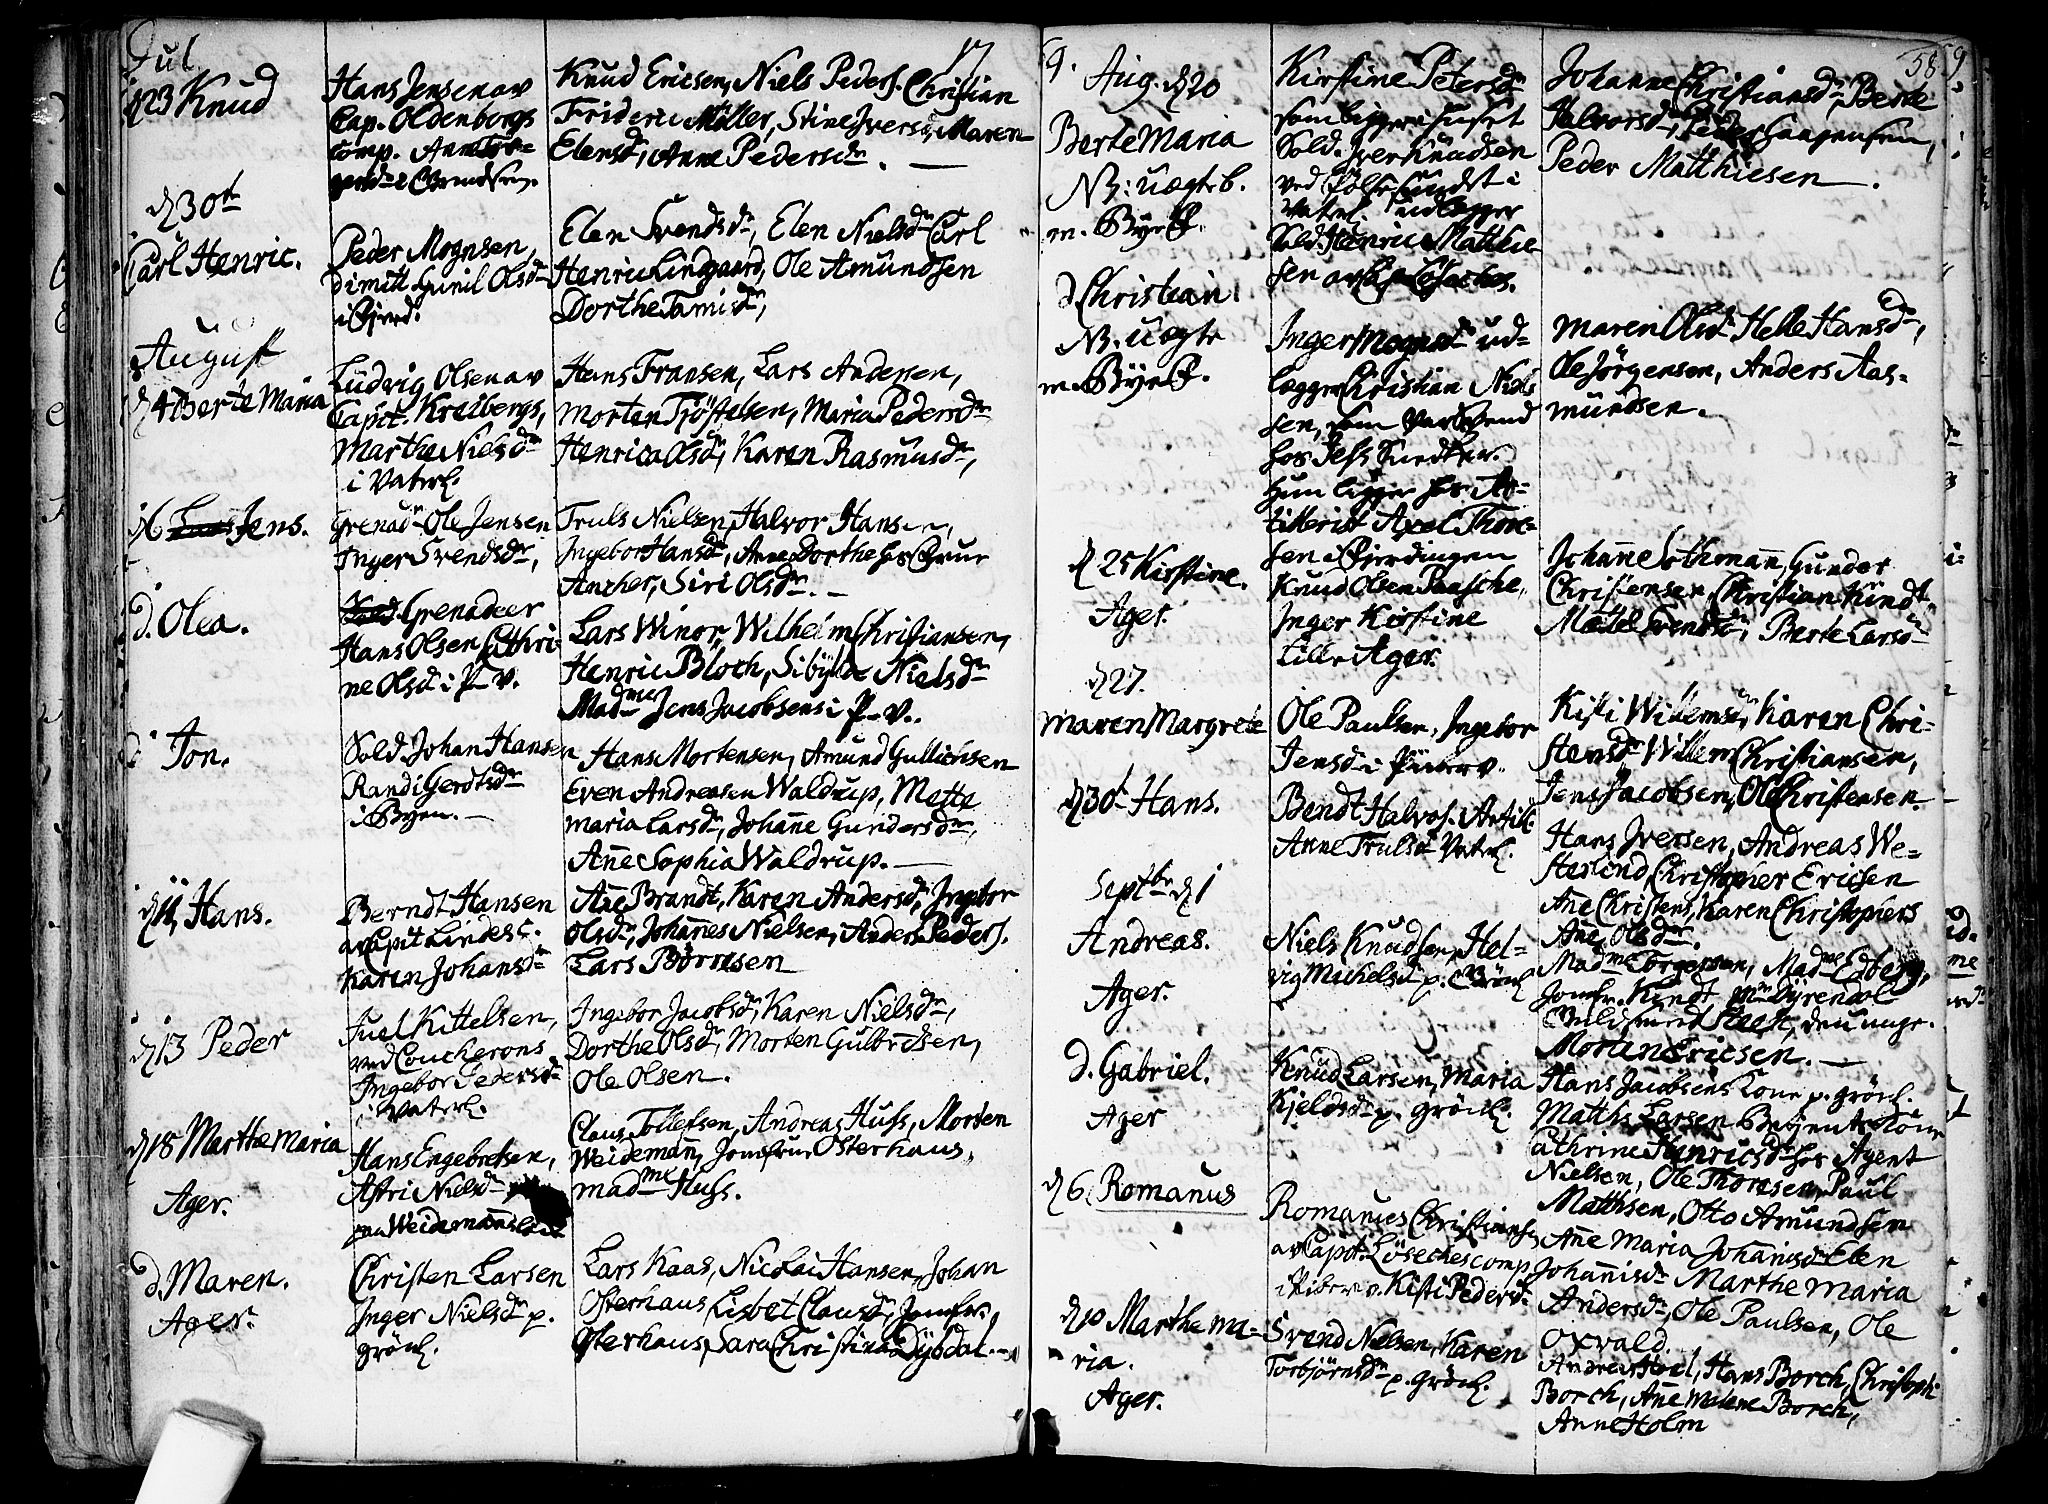 Jul. 17
d 23 Knud
Hans Jensen av
Cap. Oldenborgs
comp. Anne
Knud Ericsen, Niels Peders. Christian
Frideric Möller, Stine Iversd, Maren
Elensd, Anne Pedersdr.
d 30t
Carl Henric.
Peder Mognsen,
dimitt Gunil Olsd
i Fjerd.
Elen Svendsdr, Elen Nielsdr Carl
Henric Lindgaard, Ole Amundsen
Dorthe Tomisdr,
August
d 4 Berte Maria
Ludvig Olsen av
Capit. Kreibergs,
Marthe Nielsdr
i Vaterl.
Hans Fransen, Lars Andersen,
Morten Tjöstelsen, Maria Pedersdr
Henrica Olsdr, Karen Rasmusdr,
d 6 Jens.
Grenadr Ole Jensen
Inger Svendsdr,
Truls Nielsen, Halvor Hansen,
Ingebor Hansdr, Anne Dorthe hos
Ancher, Siri Olsdr.
d. Olea.
Grenadeer
Hans Olsen, Cathri-
ne Olsdr i P-v.
Lars Winor, Wilhelm Christiansen,
Henric Bloch, Sibylle Nielsdr
Madme Jens Jacobsens i P-v.
Jon.
Sold. Johan Hansen
Randi Gerdtsdr
i Byen.
Hans Mortensen, Amund Gullichsen
Even Andreasen Waldrup, Mette
Maria Larsdr, Johanne Gundersdr,
Anne Sophia Waldrup.
d 11, Hans.
Berndt Hansen
av Capit Lindes C.
Karen Johansdr
Anne Brandt, Karen Andersdr, Ingebor
Olsdr, Johannes Nielsen, Anders Peders.
Lars Börresen
d 13 Peder
Juel Kittelsen,
ved Coucherons
Ingebor Pedersdr
i Vaterl.
Ingebor Jacobsdr, Karen Nielsdr,
Dorthe Olsdr, Morten Gulbrdsen,
Ole Olsen.
d 18 Marthe Maria
Ager.
Hans Engebretsen,
Astri Nielsdr
paa Weidemans
Claus Tollefsen, Andreas Huss, Morten
Weideman, Jomfrue Osterhaus,
madme Huss.
d. Maren.
Ager.
Christen Larsen
Inger Nielsdr p.
grönl.
Lars Kaas, Nicolai Hansen, Johan
Osterhaus, Lisbet Clausdr, Jomfr.
Osterhaus, Sara Christina Dybdal.
9. 58
Aug. d 20
Berte Maria
NB: uægte b.
m. Byr P.
Kirstine Petersdr
som ligger i huset
Sold. Iver Knudsen
ved Pölsesundet i
Vaterl. udlægger
Sold. Henric Matthie-
sen av Cap. Löseches.
Johanne Christiansdr, Berte
Halvorsdr, Peder Haagensen,
Peder Matthiesen.
d Christian.
NB. uægte
m. Byr P.
Inger Mognsdr ud-
lægger Christian Niel-
sen, som var Svend
hos Jess Snedker.
Hun ligger hos Ar-
tillerist Axel Thore-
sen i Fjerdingen
Maren Olsdr Helle Hansdr,
Ole Jörgensen, Anders Aas-
mundsen.
d 25 Kirstine.
Ager.
Knud Olsen Paasche,
Inger Kirstine
Lille Ager.
Johanne Sothmann, Gunder
Christensen, Christian Kindt,
Mettel Svendsdr, Berte Larsdr
d 27.
Maren Margrete
Ole Paulsen, Ingebor
Jensdr i Piperv.
Kisti Willemsdr, Karen Chri-
stensdr Willem Christiansen,
Jens Jacobsen, Ole Christensen
d 30t Hans.
Bendt Halvos. Artil.
Anne Trulsdr Vaterl.
Hans Iversen, Andreas We-
sterlind, Christopher Ericsen
Ane Christens, Karen Christophers
Anne Olsdr.
Septbr d 1
Andreas.
Ager.
Niels Knudsen, Hel-
vig Michelsdr p. Grönl
Madme Torgersen, Madme Edberg,
Jomfr. Kindt, Dyrendal
Guldsmed Steen, den unge.
Morten Ericsen.
d. Gabriel.
Ager
Knud Larsen, Maria
Kjeldsdr p. grönl.
Hans Jacobsens Kone p. grönl.
Matths Larsen Kone
Cathrine Henricsdr hos Agent
Nielsen, Ole Thoresen, Paul
Matthsen, Otto Amundsen
d 6. Romanus
Romanus Christians,
av Capt. Lösechescomp
i Piberv. Kisti Pedersdr.
Anne Maria Johansdr Elen
Johannisdr Marthe Maria
Andersdr, Ole Paulsen, Ole
Oxvald.
d 10 Marthe Ma-
ria.
Ager.
Svend Nielsen, Karen
Torbjörnsdr p. grönl.
Andreas Hoel, Hans Borch, Christoph
Borch, Anne Malene Borch,
Anne Holm